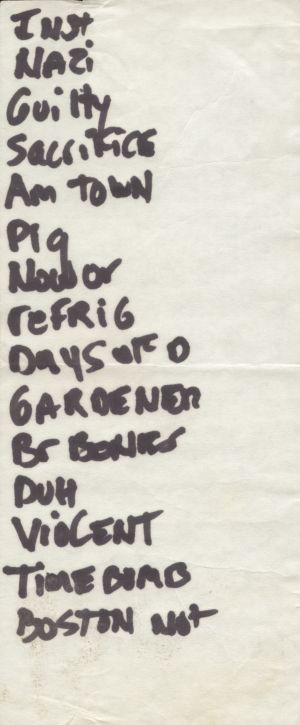 Inst
NAZi
Guilty
Sacrifice
Am TOWN
Pig
Now or
refRiG
Days of O
GARDENER
Br BONES
DUH
VioLENT
TIME BOMB
BOSTON Not